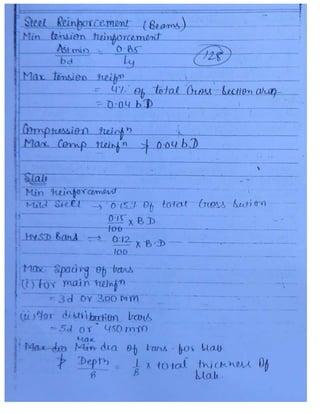 Steel Reinforcement (Beams)
Min tension reinforcement
Ast min / bd = 0.85 / fy
128
Max tension reifn
= 4% of total Cross-section area
= 0.04 bD
Compression reinfn
Max Comp reinfn ≯ 0.04 bD
Slab
Min reinforcement
Mild Steel → 0.15% of total Cross section
0.15 / 100 × BD
HYSD Bars → 0.12 / 100 × B.D
Max Spacing of bars
(i) For main reinfn
= 3d or 300 mm
(ii) For distribution bars
= 5d or 450 mm
Max dia of bars for slab
≯ Depth / 8 = 1/8 × total thickness of
slab.